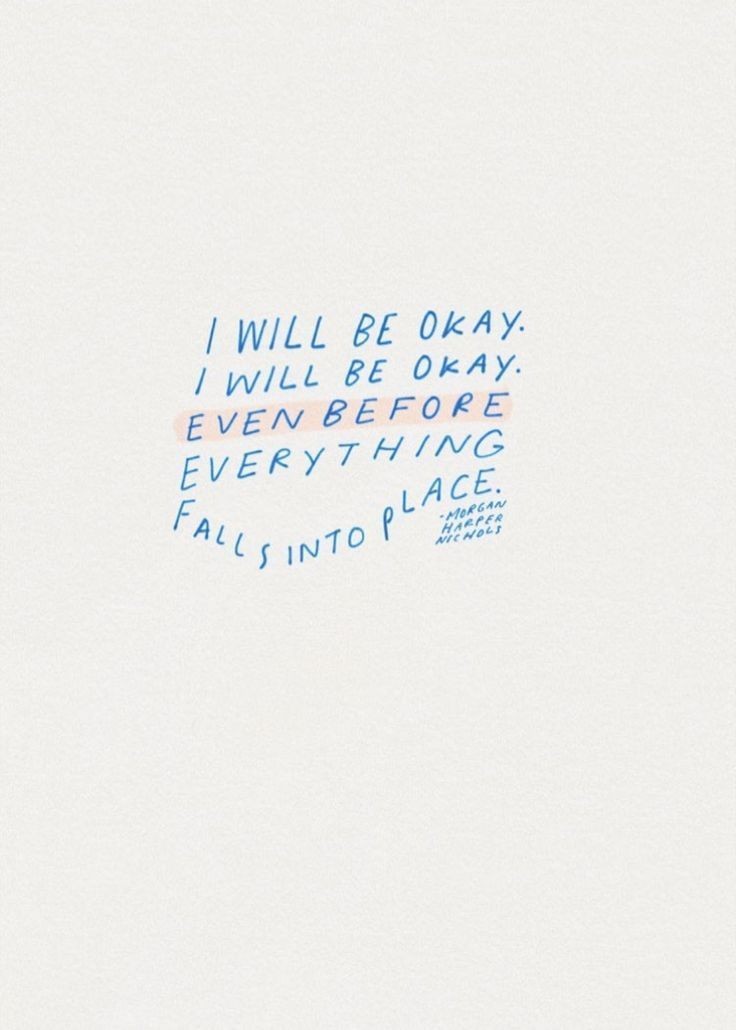 I WILL BE OKAY.
I WILL BE OKAY.
EVEN BEFORE
EVERYTHING
FALLS INTO PLACE.
-MORGAN
HARPER
NICHOLS